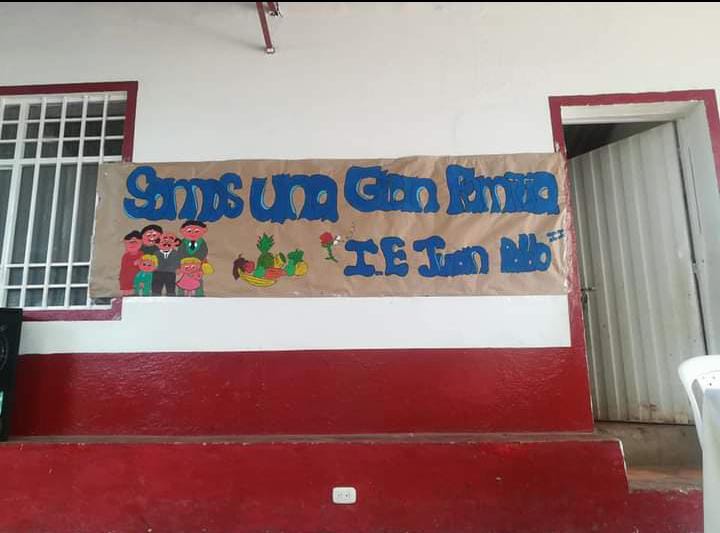 Somos una Gran Familia
I.E Juan Pablo